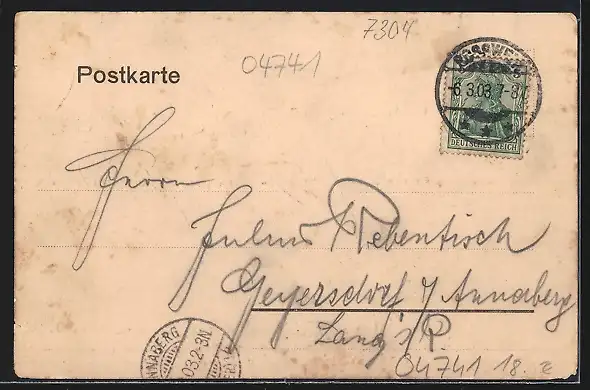 7304
04741
Postkarte
ROSSWEIN
-6.3.03.7-8V.
DEUTSCHES REICH
Herrn
Julius Rebentisch
Geyersdorf b/ Annaberg
ANNABERG
.03.2-3N.
04741 18.